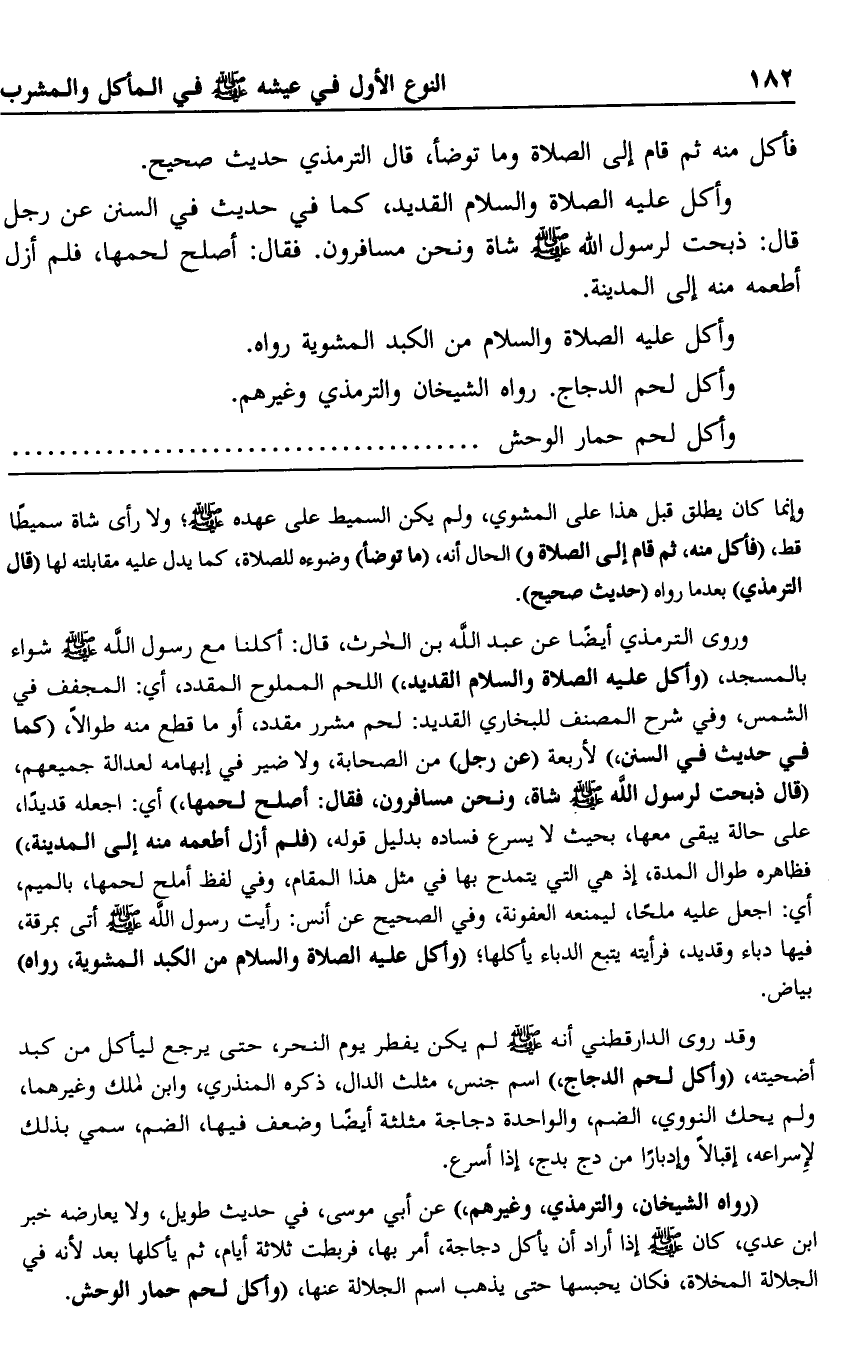 ١٨٢ النوع الأول في عيشه ﷺ في المأكل والمشرب
فأكل منه ثم قام إلى الصلاة وما توضأ، قال الترمذي حديث صحيح.
وأكل عليه الصلاة والسلام القديد، كما في حديث في السنن عن رجل
قال: ذبحت لرسول الله ﷺ شاة ونحن مسافرون. فقال: أصلح لحمها، فلم أزل
أطعمه منه إلى المدينة.
وأكل عليه الصلاة والسلام من الكبد المشوية رواه.
وأكل لحم الدجاج. رواه الشيخان والترمذي وغيرهم.
وأكل لحم حمار الوحش .......................................
وإنما كان يطلق قبل هذا على المشوي، ولم يكن السميط على عهده ﷺ؛ ولا رأى شاة سميطًا
قط، (فأكل منه، ثم قام إلى الصلاة و) الحال أنه، (ما توضأ) وضوءه للصلاة، كما يدل عليه مقابلته لها (قال
الترمذي) بعدما رواه (حديث صحيح).
وروى الترمذي أيضًا عن عبد اللَّه بن الحٰرث، قال: أكلنا مع رسول اللَّه ﷺ شواء
بالمسجد، (وأكل عليه الصلاة والسلام القديد،) اللحم المملوح المقدد، أي: المجفف في
الشمس، وفي شرح المصنف للبخاري القديد: لحم مشرر مقدد، أو ما قطع منه طوالاً، (كما
في حديث في السنن،) لأربعة (عن رجل) من الصحابة، ولا ضير في إبهامه لعدالة جميعهم،
(قال ذبحت لرسول اللَّه ﷺ شاة، ونحن مسافرون، فقال: أصلح لحمها،) أي: اجعله قديدًا،
على حالة يبقى معها، بحيث لا يسرع فساده بدليل قوله، (فلم أزل أطعمه منه إلى المدينة،)
فظاهره طوال المدة، إذ هي التي يتمدح بها في مثل هذا المقام، وفي لفظ أملح لحمها، بالميم،
أي: اجعل عليه ملحًا، ليمنعه العفونة، وفي الصحيح عن أنس: رأيت رسول اللَّه ﷺ أتى بمرقة،
فيها دباء وقديد، فرأيته يتبع الدباء يأكلها؛ (وأكل عليه الصلاة والسلام من الكبد المشوية، رواه)
بياض.
وقد روى الدارقطني أنه ﷺ لم يكن يفطر يوم النحر، حتى يرجع ليأكل من كبد
أضحيته، (وأكل لحم الدجاج،) اسم جنس، مثلث الدال، ذكره المنذري، وابن مٰلك وغيرهما،
ولم يحك النووي، الضم، والواحدة دجاجة مثلثة أيضًا وضعف فيها، الضم، سمي بذلك
لإسراعه، إقبالاً وإدبارًا من دج بدج، إذا أسرع.
(رواه الشيخان، والترمذي، وغيرهم،) عن أبي موسى، في حديث طويل، ولا يعارضه خبر
ابن عدي، كان ﷺ إذا أراد أن يأكل دجاجة، أمر بها، فربطت ثلاثة أيام، ثم يأكلها بعد لأنه في
الجلالة المخلاة، فكان يحبسها حتى يذهب اسم الجلالة عنها، (وأكل لحم حمار الوحش.